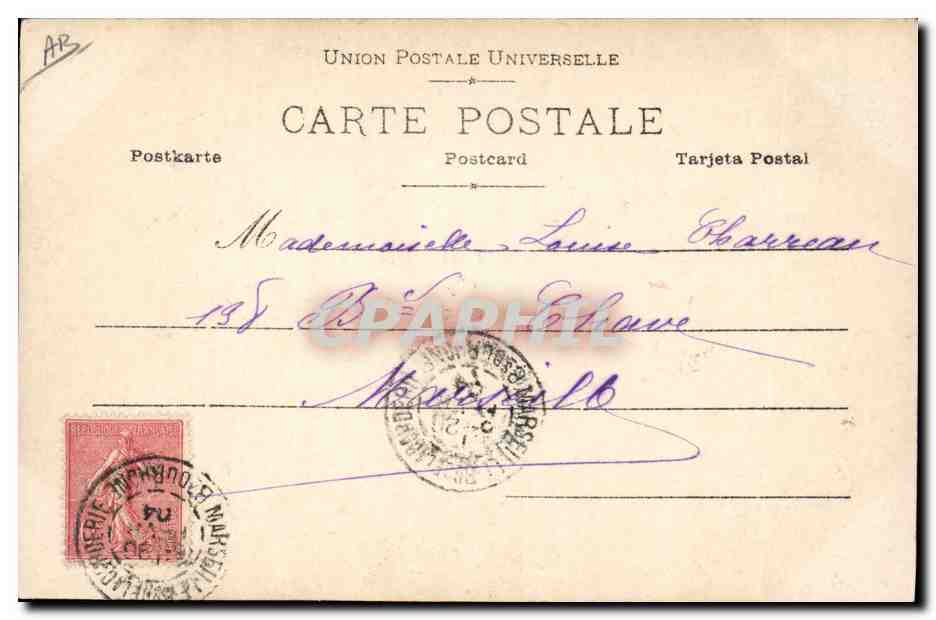 AB
UNION POSTALE UNIVERSELLE
CARTE POSTALE
Postkarte Postcard Tarjeta Postal
Mademoiselle Louise Charreau
198 Bd Chave
CPARAMA
Marseille
MARSEILLE
04
RÉPUBLIQUE FRANÇAISE
MARSEILLE
04